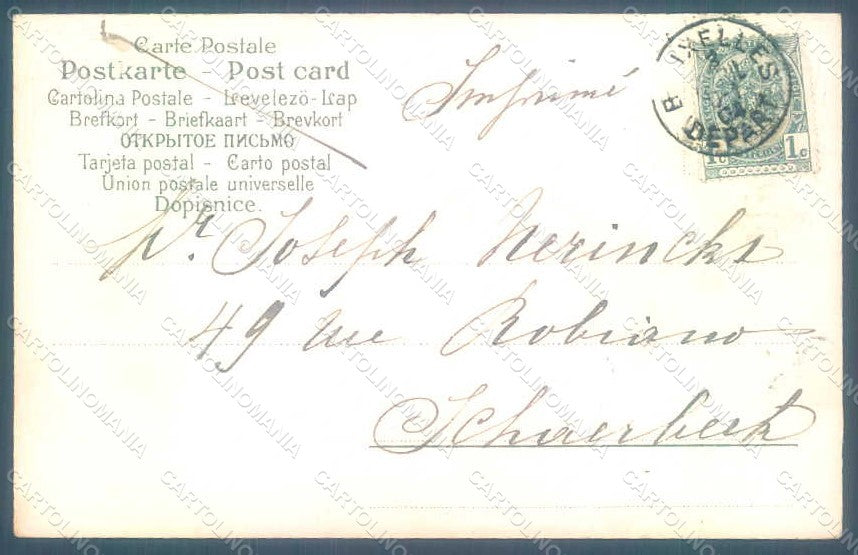 Carte Postale
Postkarte - Post card
Cartolina Postale - Levelező-Lap
Brefkort - Briefkaart - Brevkort
ОТКРЫТОЕ ПИСЬМО
Tarjeta postal - Carto postal
Union postale universelle
Dopisnice.
Imprimé
IXELLES
DEPART
1c 1c
Joseph Nerinckx
49 rue Robiano
Schaerbeek
CARTOLINOMANIA